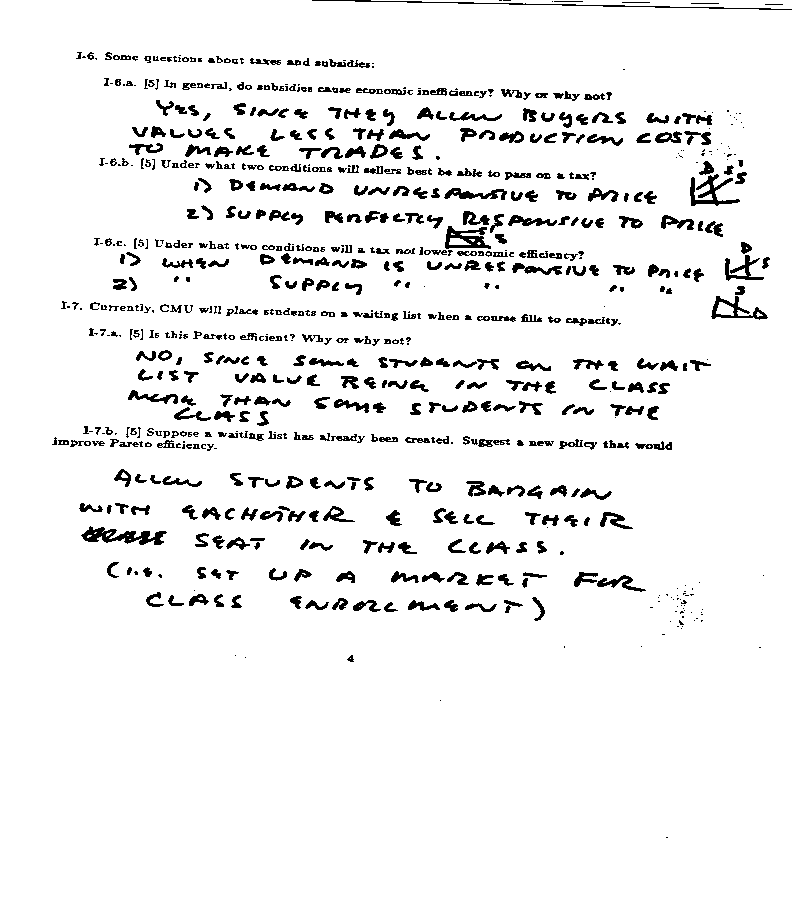 I-6. Some questions about taxes and subsidies:
I-6.a. [5] In general, do subsidies cause economic inefficiency? Why or why not?
YES, SINCE THEY ALLOW BUYERS WITH
VALUES LESS THAN PRODUCTION COSTS
TO MAKE TRADES.
I-6.b. [5] Under what two conditions will sellers best be able to pass on a tax?
1) DEMAND UNRESPONSIVE TO PRICE
D S' S
2) SUPPLY PERFECTLY RESPONSIVE TO PRICE
S' S
I-6.c. [5] Under what two conditions will a tax not lower economic efficiency?
1) WHEN DEMAND IS UNRESPONSIVE TO PRICE
D S
2) " SUPPLY " " " "
S D
I-7. Currently, CMU will place students on a waiting list when a course fills to capacity.
I-7.a. [5] Is this Pareto efficient? Why or why not?
NO, SINCE SOME STUDENTS ON THE WAIT
LIST VALUE BEING IN THE CLASS
MORE THAN SOME STUDENTS IN THE
CLASS
I-7.b. [5] Suppose a waiting list has already been created. Suggest a new policy that would
improve Pareto efficiency.
ALLOW STUDENTS TO BARGAIN
WITH EACHOTHER & SELL THEIR
SEAT IN THE CLASS.
(i.e. SET UP A MARKET FOR
CLASS ENROLLMENT)
4